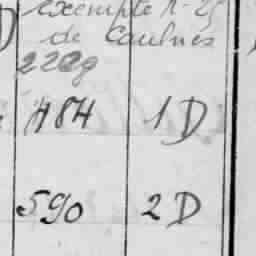 D exempte R-25
de Caulnes
222g
484 1 D
590 2 D